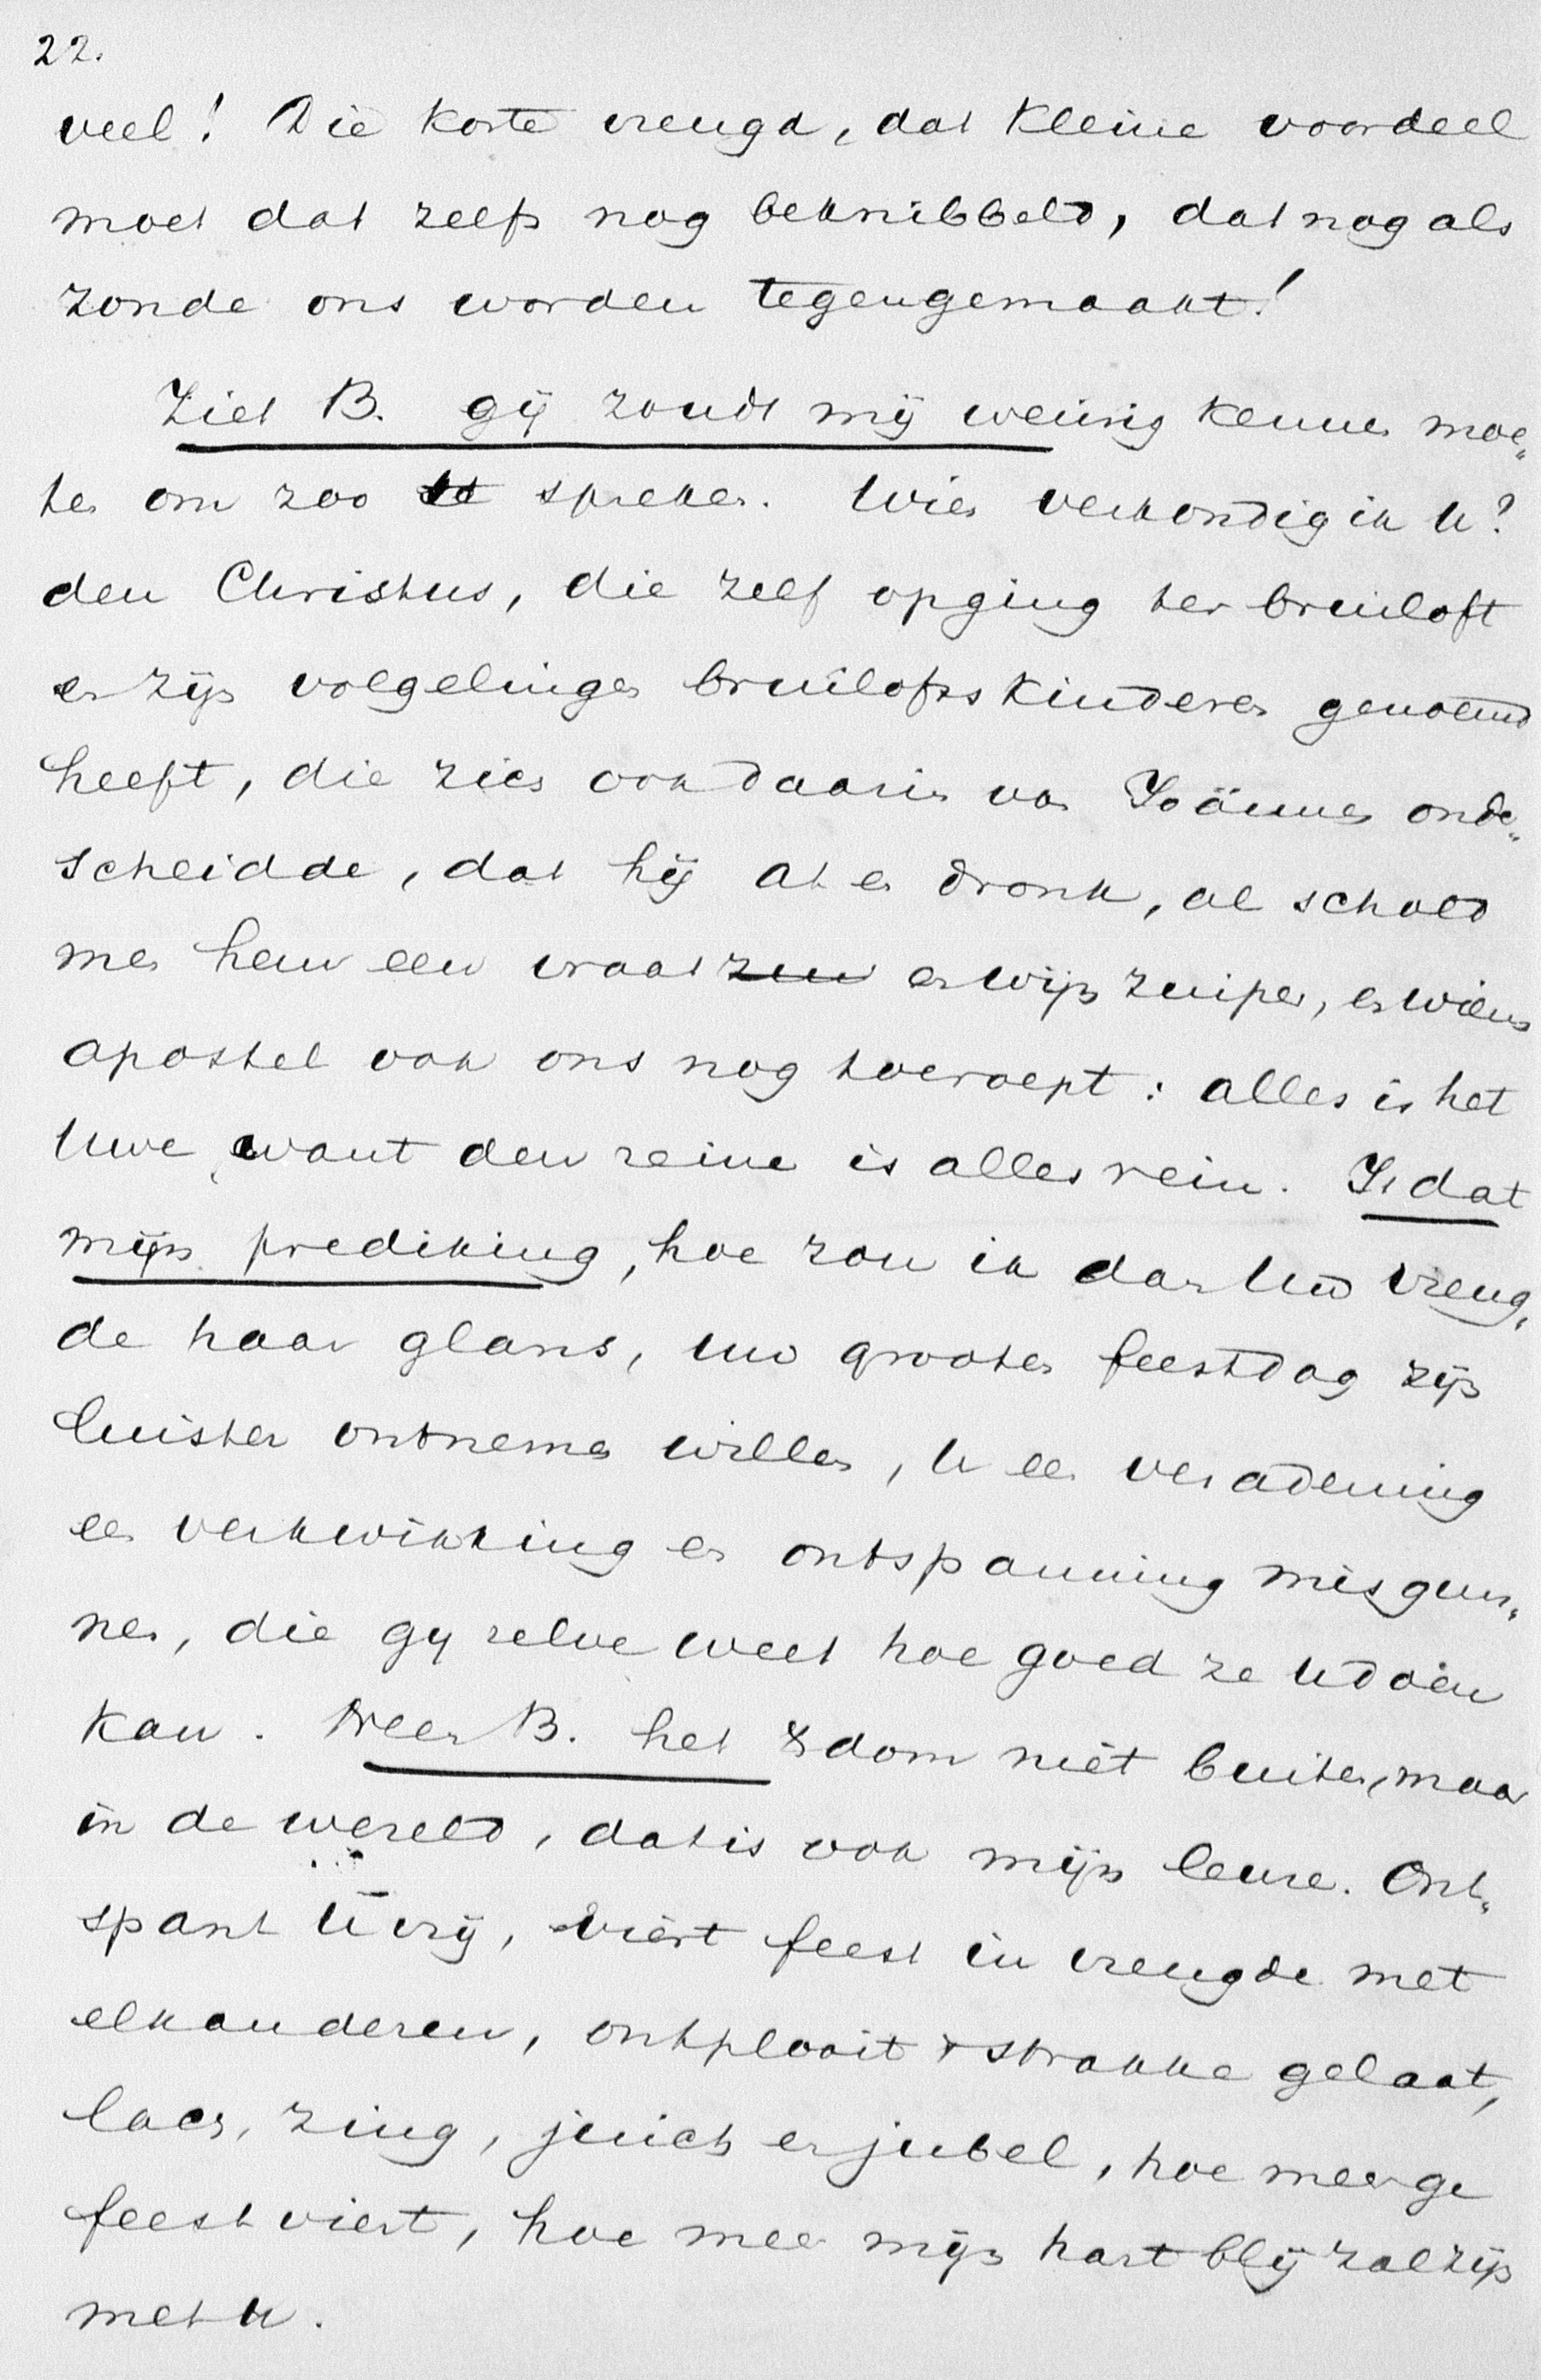 22.
veel! Die korte vreugd, dat kleine voordeel
moet dat zelfs nog beknibbeld, dat nog als
zonde ons worden tegengemaakt!
Ziet B. gij zoudt mij weinig kennen moe„
ten om zoo te spreken. Wien verkondig ik U?
den Christus, die zelf opging ter bruiloft
en zijn volgelingen bruiloftskinderen genoemd
heeft, die zich ook daarin van Joännes onder„
scheidde, dat hij at en dronk, al schold
men hem een vraat en wijnzuiper, en wiens
apostel ook ons nog toeroept: alles is het
Uwe, want den reine is alles rein. Is dat
mijn prediking, hoe zou ik dan Uw vreug„
de haar glans, uw grooten feestdag zijn
luister ontnemen willen, U een verademing
een verkwikking en ontspanning misgun„
nen, die gy zelve weet hoe goed ze U doen
kan. Neen B. het Xdom niet buiten, maar
in de wereld, dat is ook mijn leuze. Ont„
spant U vrij, viert feest in vreugde met
elkanderen, ontplooit 't strakke gelaat,
lach, zing, juich en jubel, hoe meer ge
feest viert, hoe meer mijn hart blij zal zijn
met U.